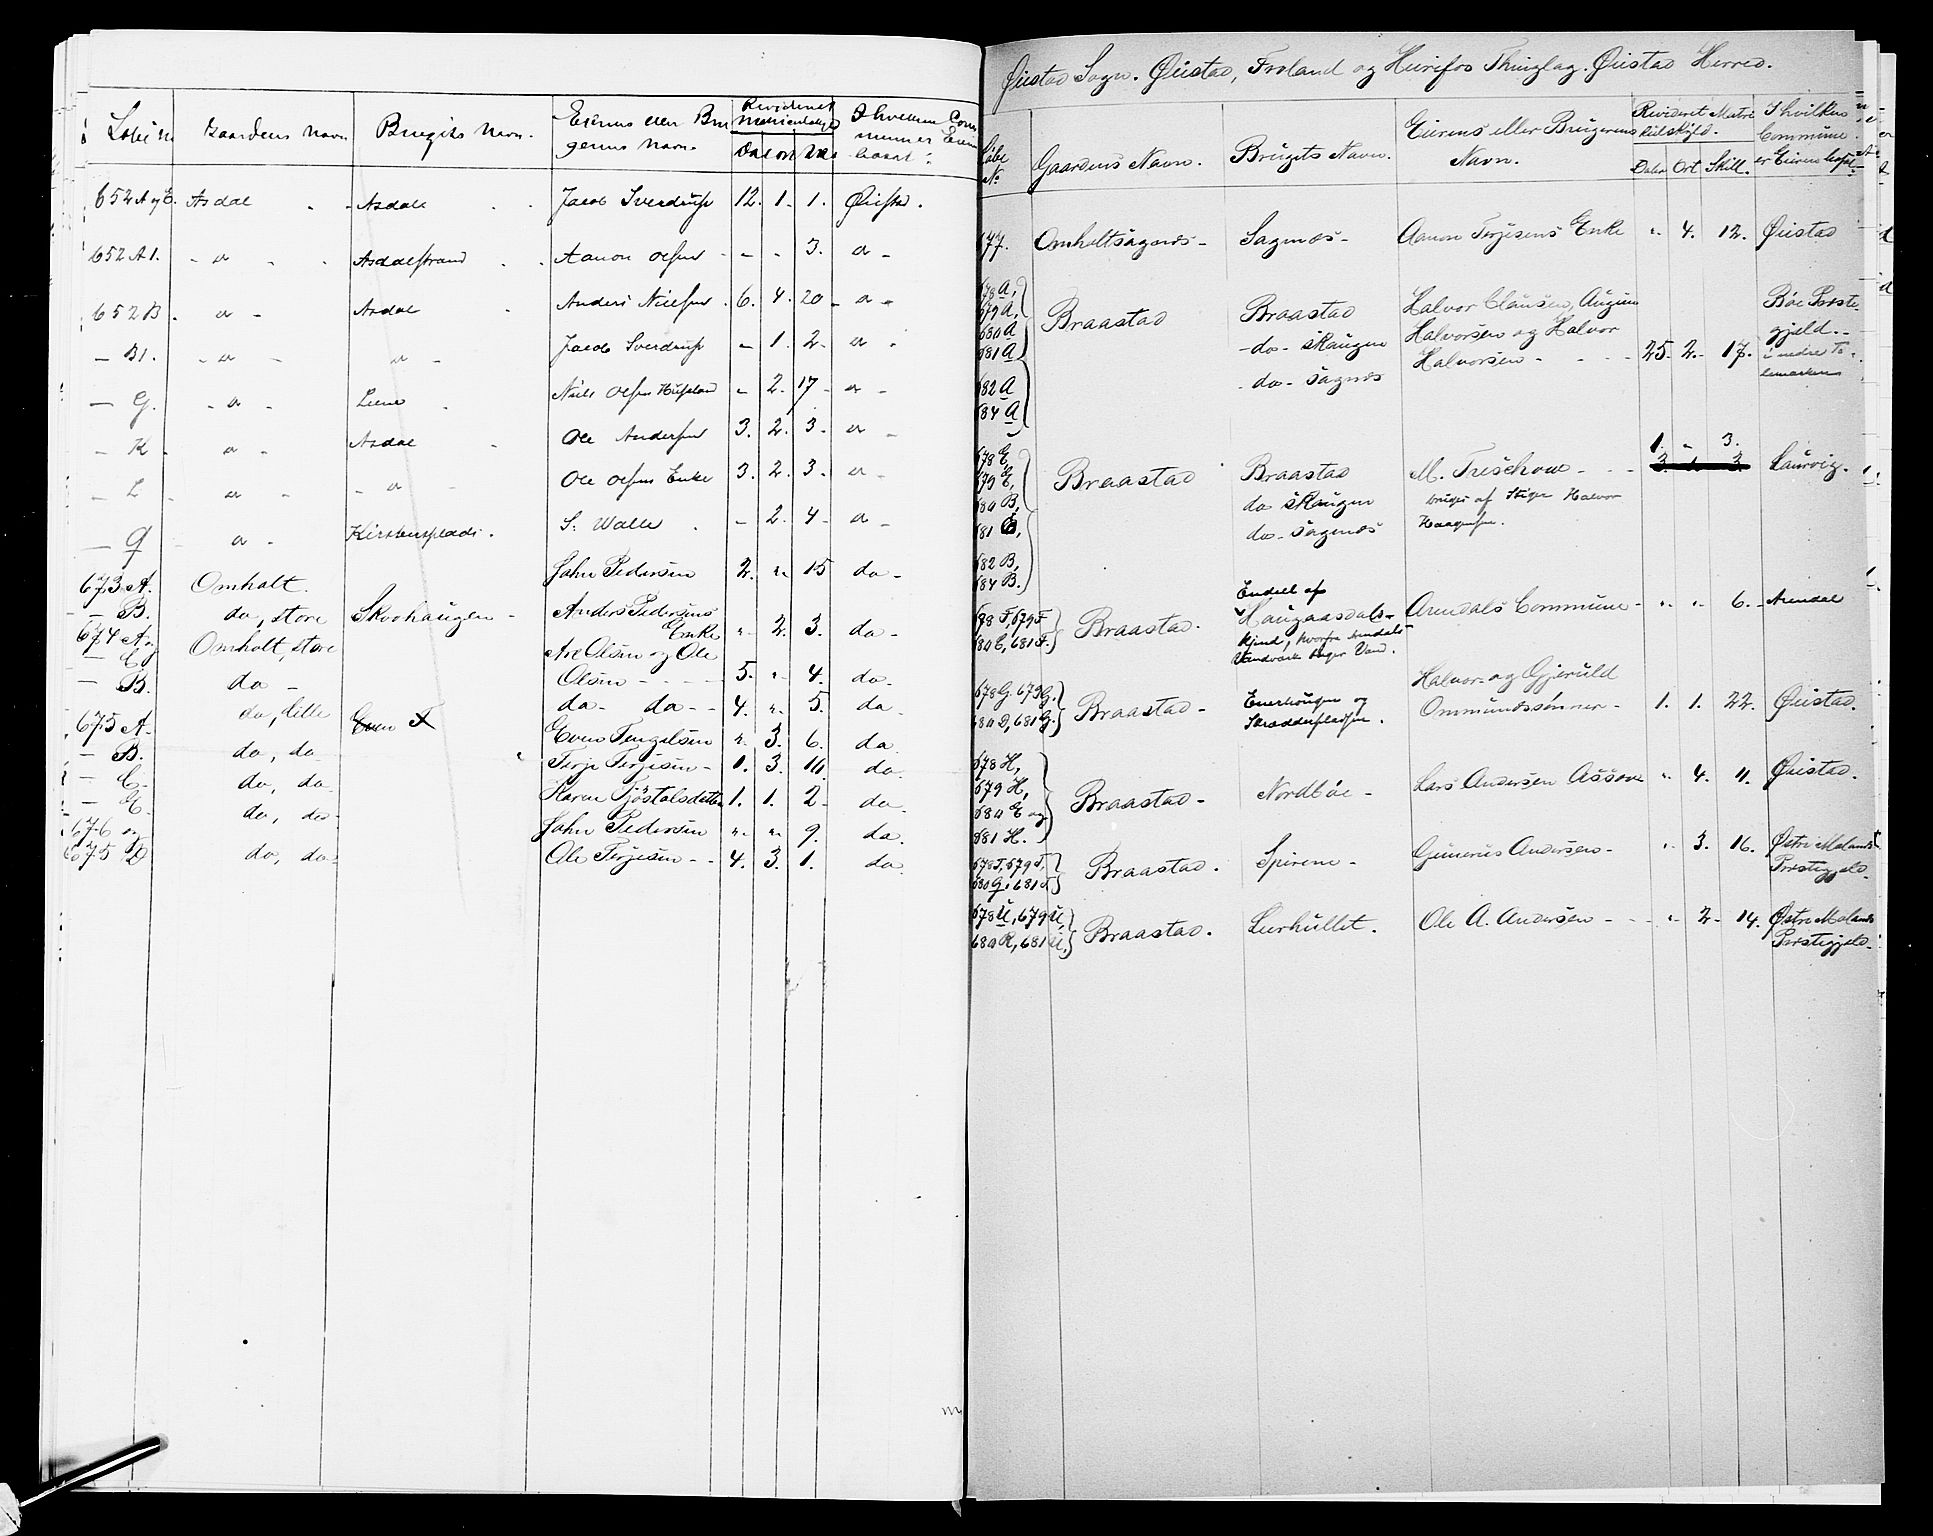 Løbe No Gaardens Navn Brugets Navn. Eierens eller Brugerens Navn. Revideret Matriculskyld Daler Ort Skil I hvilken Commune er Eieren bosat.
652 A og E. Asdal - Asdal Jacob Sverdrup 12. 1. 1. Øiestad.
652 A1. - " - Asdalstrand Aanon Olsen - - 3. " -
652 B. " - Asdal Anders Nielsen 6. 4. 20 - " -
- B1. - " - " - Jacob Sverdrup - 1. 2. "
- G. - " - Niels Olsen - 2. 17 - " -
- K - " - Asdal Ole Andersen 3. 2. 3. " -
- L - " - - " - Ole Olsens Enke 3. 2. 3. " -
- Q - " - Kirstensplads. S. Walle - 2. 4 - " -
673 A. Omholt. John Pedersen 2. " 15 do -
- B. do, store Skovhaugen - Anders Pedersens
Enke " 2. 3. do -
674 A og Omholt, store Ole
- C. Olsen - - - 5. " 4. do.
- B. do - do - do - - 4. " 5. do
675 A. do, lille Even Tengelsen " 3. 6. do
- B. do, do Terje Terjesen - 1. 3. 11. do.
- C. do, do Karen Tjöstolsdatter 1. 1. 2 - do
- E. do, do - John Pedersen " " 9. do.
676 og
675 D do, do - Ole Terjesen - - 4. 3. 1. do
Øiestad Sogn. Øiestad, Froland og Hisø Thinglag. Øiestad Herred.
Løbe No Gaardens Navn. Brugets Navn. Eierens eller Brugerens Navn. Revideret Matriculskyld. Daler Ort Skill. I hvilken Commune er Eieren bosat.
677. Omholtsagnes - Sagnes - Aanon Terjesens Enke " 4. 12. Øiestad
678 A,
679 A, Braastad Braastad Halvor Clausen,
680 A - do - Skaugen Halvorsen og Halvor
681 A - do - Sagnes Halvorsen - - - 25. 2 - 17.
Bøe Præste
gjeld. -
i nedre Te
lemarken
682 A
684 A
1. - 3.
678 E, Braastad Braastad M. Treschow - - 3. 1. 3. Laurvig.
679 E, do Skaugen bruges af Halvor
680 B, do - Sagnes
681 B,
682 B,
684 B.
Endeel af
678 F, 679 F Braastad. Haugaasdals- Arendals Commune - " " 6. - Arendal
680 C, 681 F. kjend, hvorfra Arendals
Vandværk tager Vand.
678 G. 679 G. Braastad - og Halvor og Gjeruld
680 D, 681 G. Skrædderpladsen. Ommundssønner - 1. 1. 22. Øiestad.
678 H,
679 H, Braastad - Nordbøe - Lars Andersen Assave " 4. 11. Øiestad.
680 E og
681 H.
678 T, 679 T, Braastad. Spirene - Gunerius Andersen - " 3. 16. Østre Molands
680 Q, 681 T Præstegjeld.
678 U, 679 U, Braastad. Leerhullet. Ole A. Andersen - - - " 2 - 14. Østre Molands
680 R, 681 U, Præstegjeld.